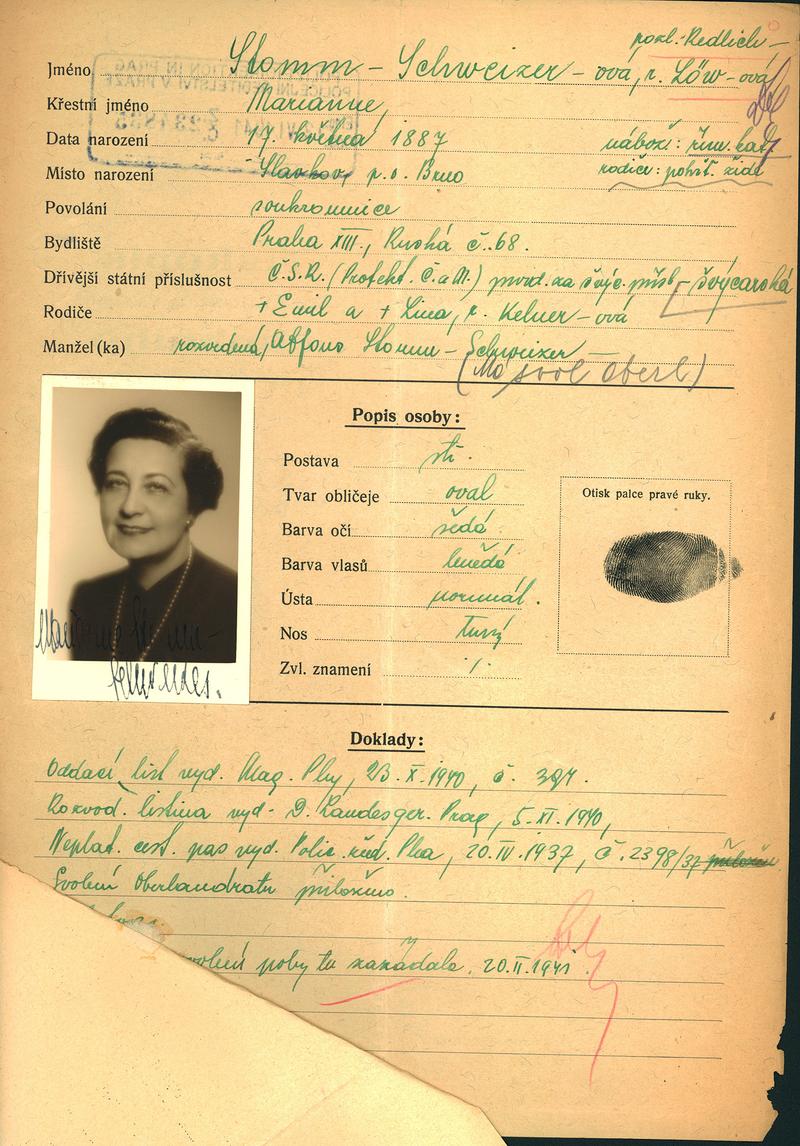 pozl. Redlich-
Jméno Stomm - Schweizer - ová, r. Löw-ová
Křestní jméno Marianne,
Data narození 17. května 1887 nábož: řím. kat.
Místo narození Slavkov, p.o. Brno rodiče: pohřt. židé
Povolání soukromnice
Bydliště Praha XIII., Ruská č. 68.
Dřívější státní příslušnost Č.S.R. (Protekt. Č. a M.) prozd. za švýc. přísl. - švýcarská
Rodiče + Emil a + Lina, r. Kelner-ová
Manžel (ka) rozvedená, Alfons Stomm - Schweizer
(Má svol Oberl)
Popis osoby:
Postava stř.
Tvar obličeje oval
Barva očí šedá
Barva vlasů hnědá
Ústa normál.
Nos
Zvl. znamení /.
Otisk palce pravé ruky.
Doklady:
Oddací list vyd. Mag. Phy, 23. X. 1940, č. 394.
Rozvod. listina vyd. D. Landesger. Prag, 5. XI. 1940,
Neplat. cest. pas vyd. Polic. řed. Pha, 20. IV. 1937, č. 2398/37
Svolení Oberlandratu přiloženo.
volení poby tu zažádala. 20. II. 1941.